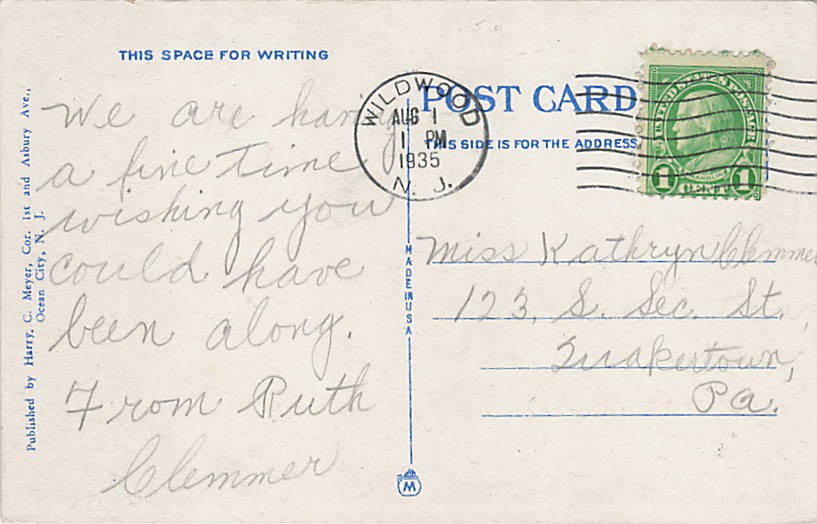 50
THIS SPACE FOR WRITING
POST CARD
THIS SIDE IS FOR THE ADDRESS
WILDWOOD
AUG 1
1 PM
1935
N. J.
UNITED STATES POSTAGE
FRANKLIN
1 1
We are having
a fine time
wishing you
could have
been along.
From Ruth
Clemmer
Miss Kathryn Clemmer
123, S. Sec. St.,
Quakertown,
Pa.
MADE IN USA
M
Published by Harry. C. Meyer, Cor. 1st and Asbury Ave.,
Ocean City, N. J.